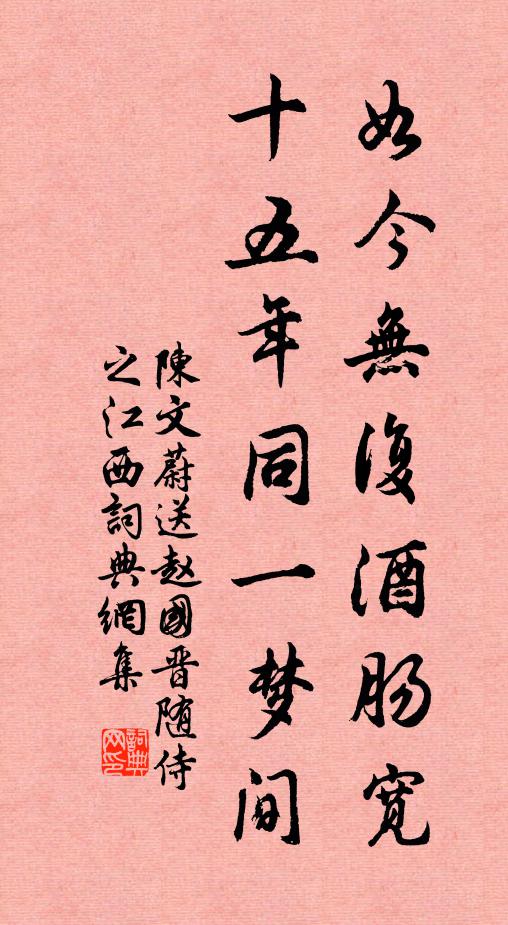 如今無復酒肠寬
十五年同一梦间
陳文蔚送赵國晋随侍
之江西詞典網集
詞典网印